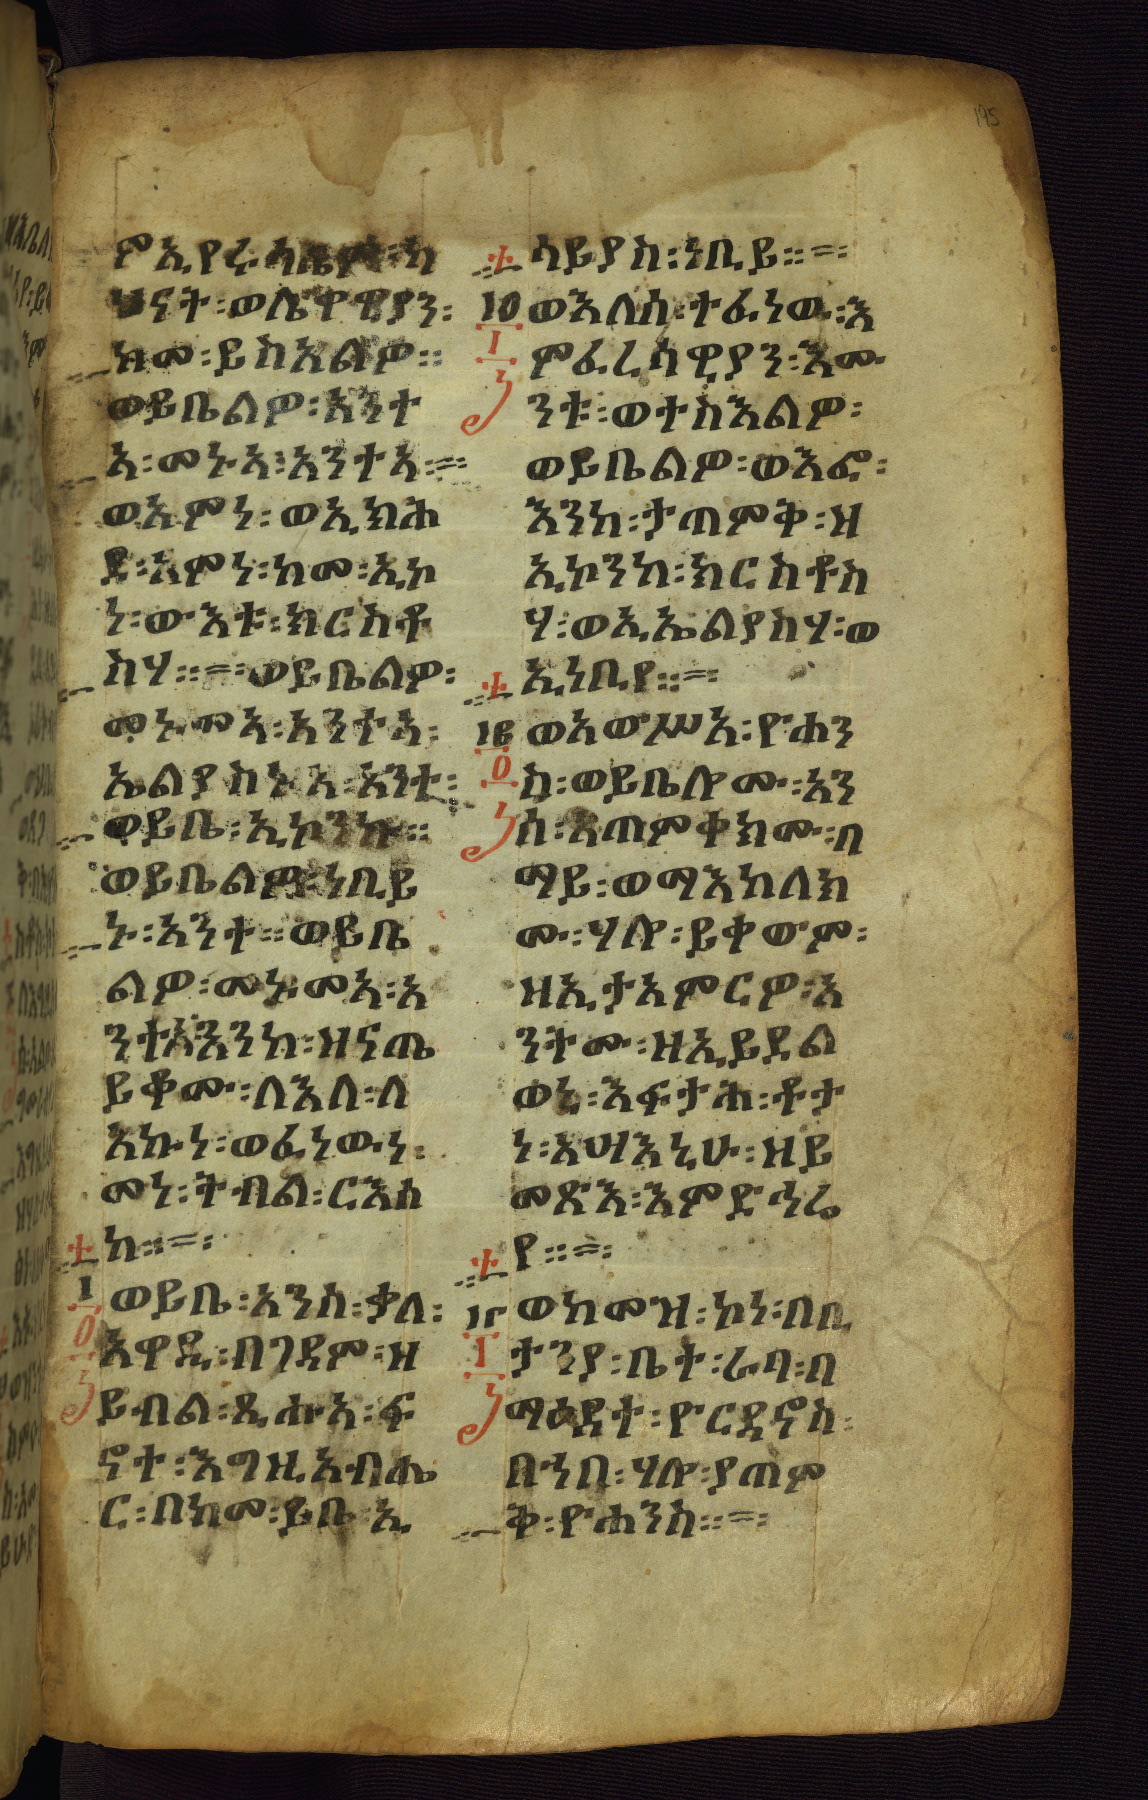 ምኢየሩሳሌም፡ካ
ህናት፡ወሌዋዊያን፡
ከመ፡ይስአልዎ።
ወይቤልዎ፡አንተ
አ፡መኑአ፡አንተአ፡=፡
ወአምነ፡ወኢክሕ
ደ፡አምነ፡ከመ፡ኢኮ
ነ፡ውእቱ፡ክርስቶ
ስሃ።=፡ወይቤልዎ፡
መኑመአ፡አንተአ፡
ኤልያስኑአ፡አንተ፡
ወይቤ፡ኢኮንኩ።
ወይቤልዎ፡ነቢይ
ኑ፡አንተ።ወይቤ
ልዎ፡መኑመአ፡አ
ንተአ፡እንከ፡ዝናጤ
ይቆሙ፡ለእለ፡ለ
አኩነ፡ወፈነውነ፡
መነ፡ትብል፡ርእሰ
ከ።=፡
ወይቤ፡አንሰ፡ቃለ፡
አዋዲ፡በገዳም፡ዘ
ይብል፡ጺሑአ፡ፍ
ኖተ፡እግዚአብሔ
ር፡በከመ፡ይቤ፡ኢ
ሳይያስ፡ነቢይ።=፡
፲፬ ወእለሰ፡ተፈነው፡እ
ምፈሪሳዊያን፡እሙ
ንቱ፡ወተስእልዎ፡
ወይቤልዎ፡ወእፎ፡
እንከ፡ታጠምቅ፡ዘ
ኢኮንከ፡ክርስቶስ
ሃ፡ወኢኤልያስሃ፡ወ
ኢነቢየ።=፡
፲፭ ወአውሥአ፡ዮሐን
ስ፡ወይቤሎሙ፡አን
ሰ፡አጠምቀክሙ፡በ
ማይ፡ወማእከለክ
ሙ፡ሃሎ፡ይቀውም፡
ዘኢታአምርዎ፡አ
ንትሙ፡ዘኢይደል
ወኒ፡እፍታሕ፡ቶታ
ነ፡አሣእኒሁ፡ዘይ
መጽእ፡እምድኅሬ
የ።=፡
፲፮ ወከመዝ፡ኮነ፡በቢ
ታንያ፡ቤተ፡ራባ፡በ
ማዕዶተ፡ዮርዳኖስ፡
በኀበ፡ሃሎ፡ያጠም
ቅ፡ዮሐንስ።=፡